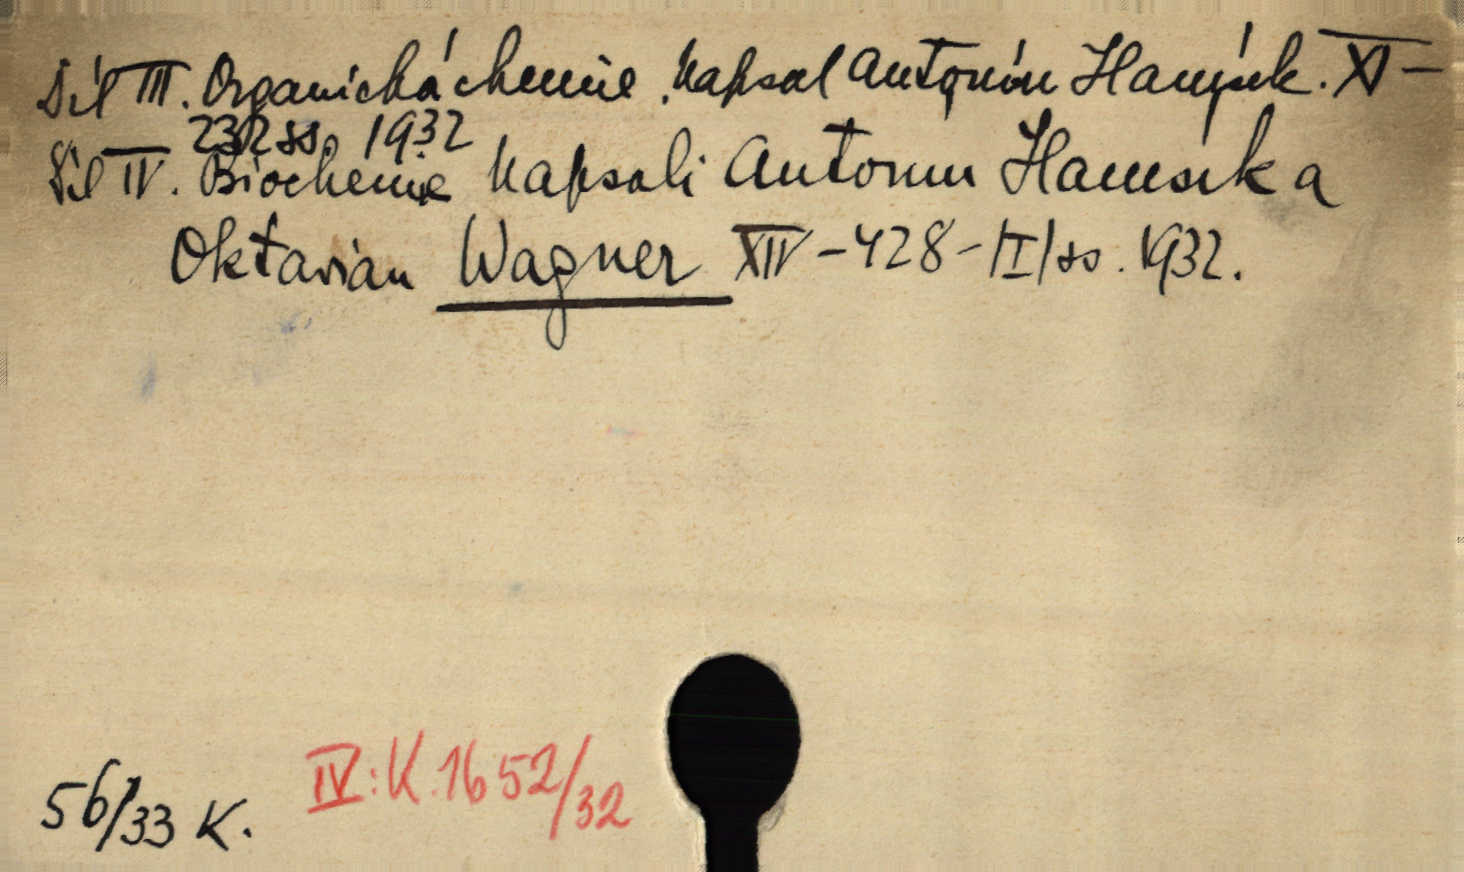 Díl III. Organická chemie. Napsal Antonín Hamsík. XI –
232 ss. 1932
Díl IV. Biochemie Napsali Antonin Hamsik a
Oktavian Wagner XIV – 428 – /I/ ss. 1932.
IV: K 1652/32
56/33 K.